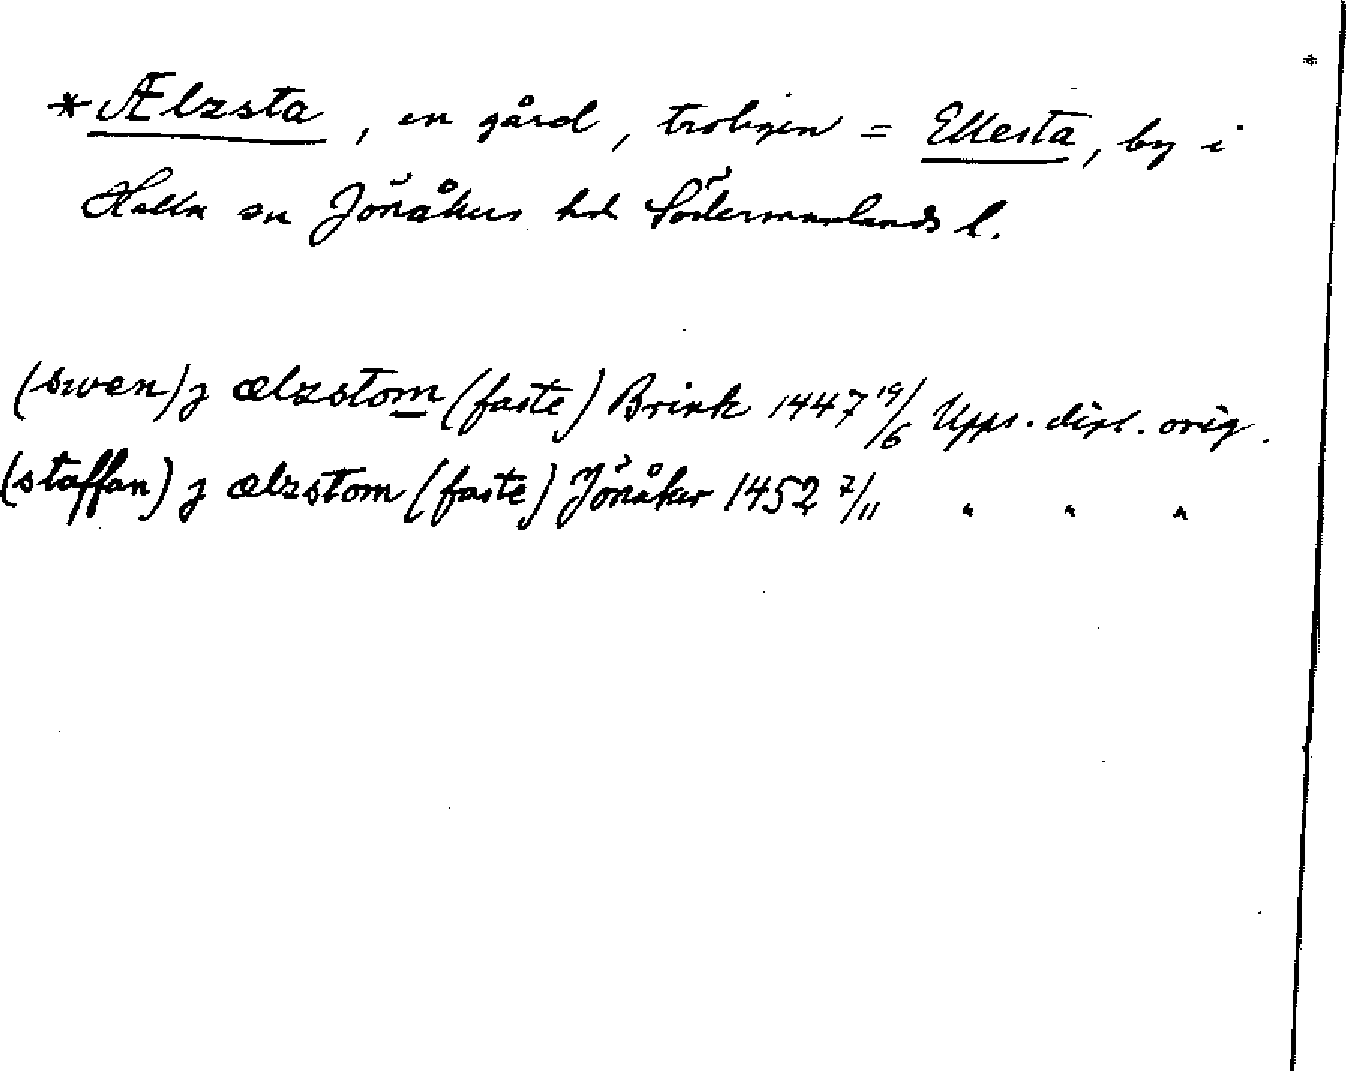 *
*Ælzsta, en gård, troligen = Ellesta, by i
Halla sn Jönåkers hd Södermanlands l.
(swen) j ælzstom (faste) Brink 1447 19/6 Upps. dipl. orig.
(staffan) j ælzstom (faste) Jönåker 1452 7/11 " " "